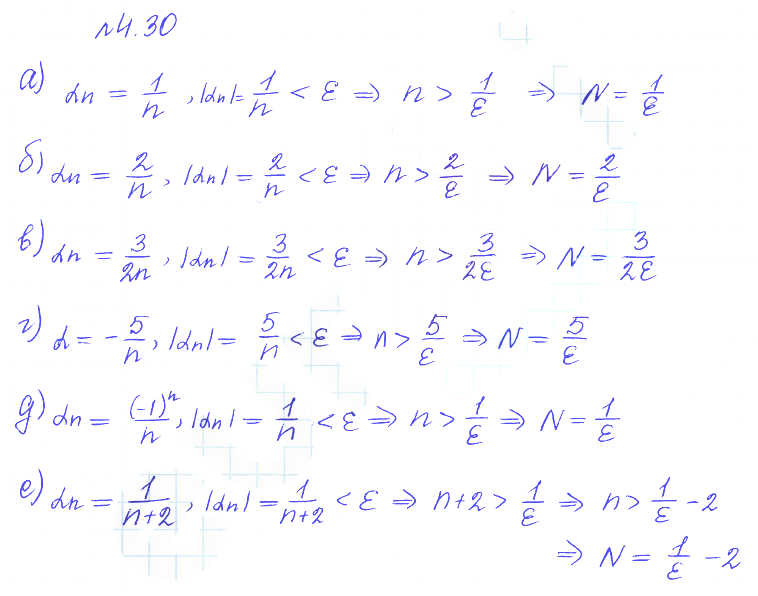 №4.30
а) αn = 1/n, |αn| = 1/n < ε ⇒ n > 1/ε ⇒ N = 1/ε
б) αn = 2/n, |αn| = 2/n < ε ⇒ n > 2/ε ⇒ N = 2/ε
в) αn = 3/2n, |αn| = 3/2n < ε ⇒ n > 3/2ε ⇒ N = 3/2ε
г) α = -5/n, |αn| = 5/n < ε ⇒ n > 5/ε ⇒ N = 5/ε
д) αn = (-1)^n/n, |αn| = 1/n < ε ⇒ n > 1/ε ⇒ N = 1/ε
е) αn = 1/(n+2), |αn| = 1/(n+2) < ε ⇒ n+2 > 1/ε ⇒ n > 1/ε - 2
⇒ N = 1/ε - 2